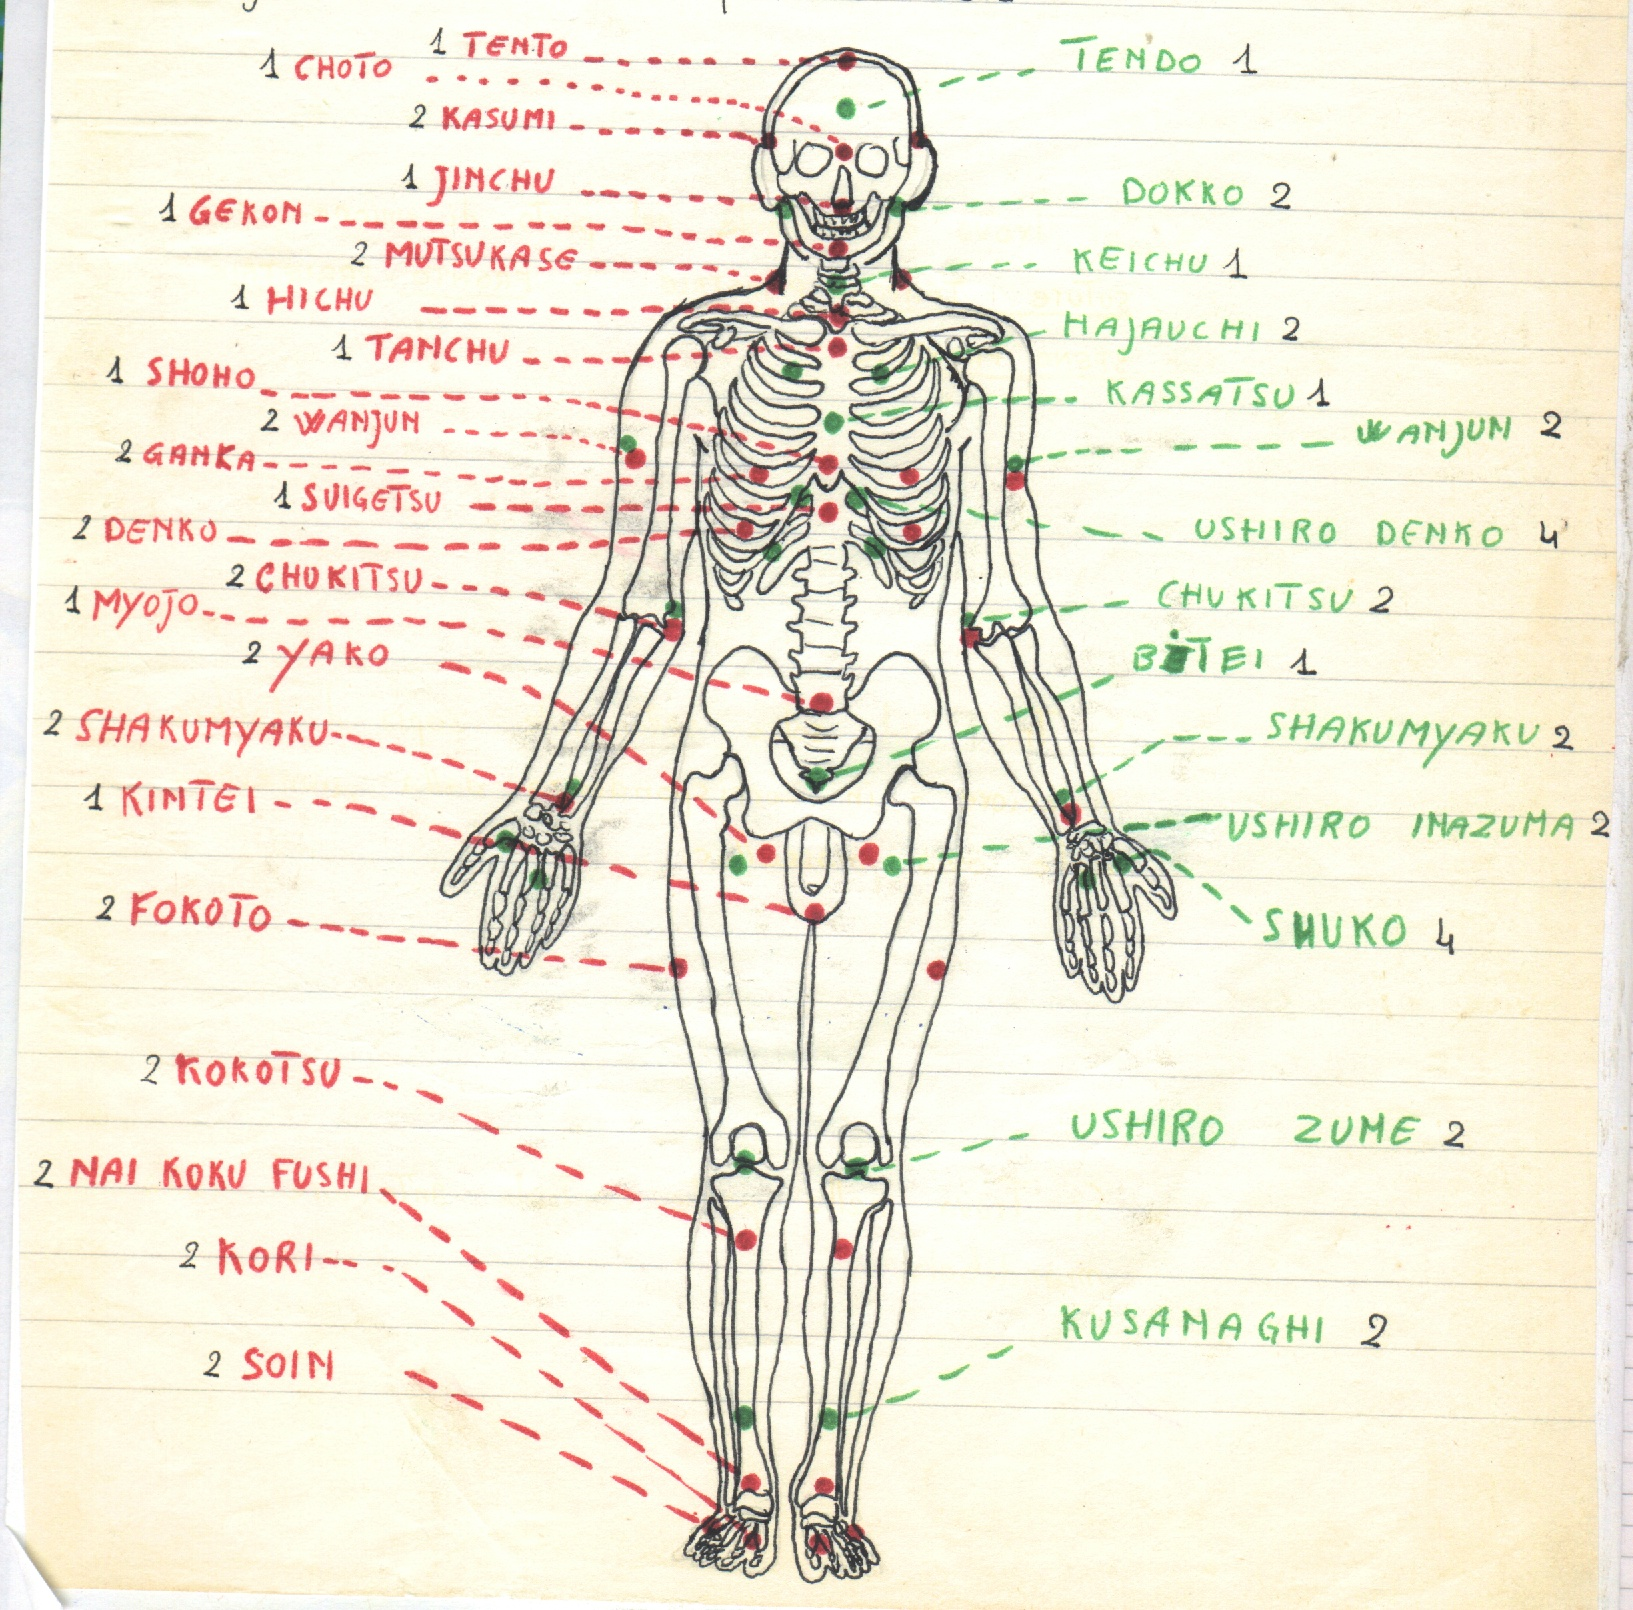 1 TENTO
1 CHOTO
2 KASUMI
1 JINCHU
1 GEKON
2 MUTSUKASE
1 HICHU
1 TANCHU
1 SHOHO
2 WANJUN
2 GANKA
1 SUIGETSU
2 DENKO
2 CHUKITSU
1 MYOJO
2 YAKO
2 SHAKUMYAKU
1 KINTEI
2 FOKOTO
2 KOKOTSU
2 NAI KOKU FUSHI
2 KORI
2 SOIN
TENDO 1
DOKKO 2
KEICHU 1
HAJAUCHI 2
KASSATSU 1
WANJUN 2
USHIRO DENKO 4
CHUKITSU 2
BITEI 1
SHAKUMYAKU 2
USHIRO INAZUMA 2
SHUKO 4
USHIRO ZUME 2
KUSANAGHI 2